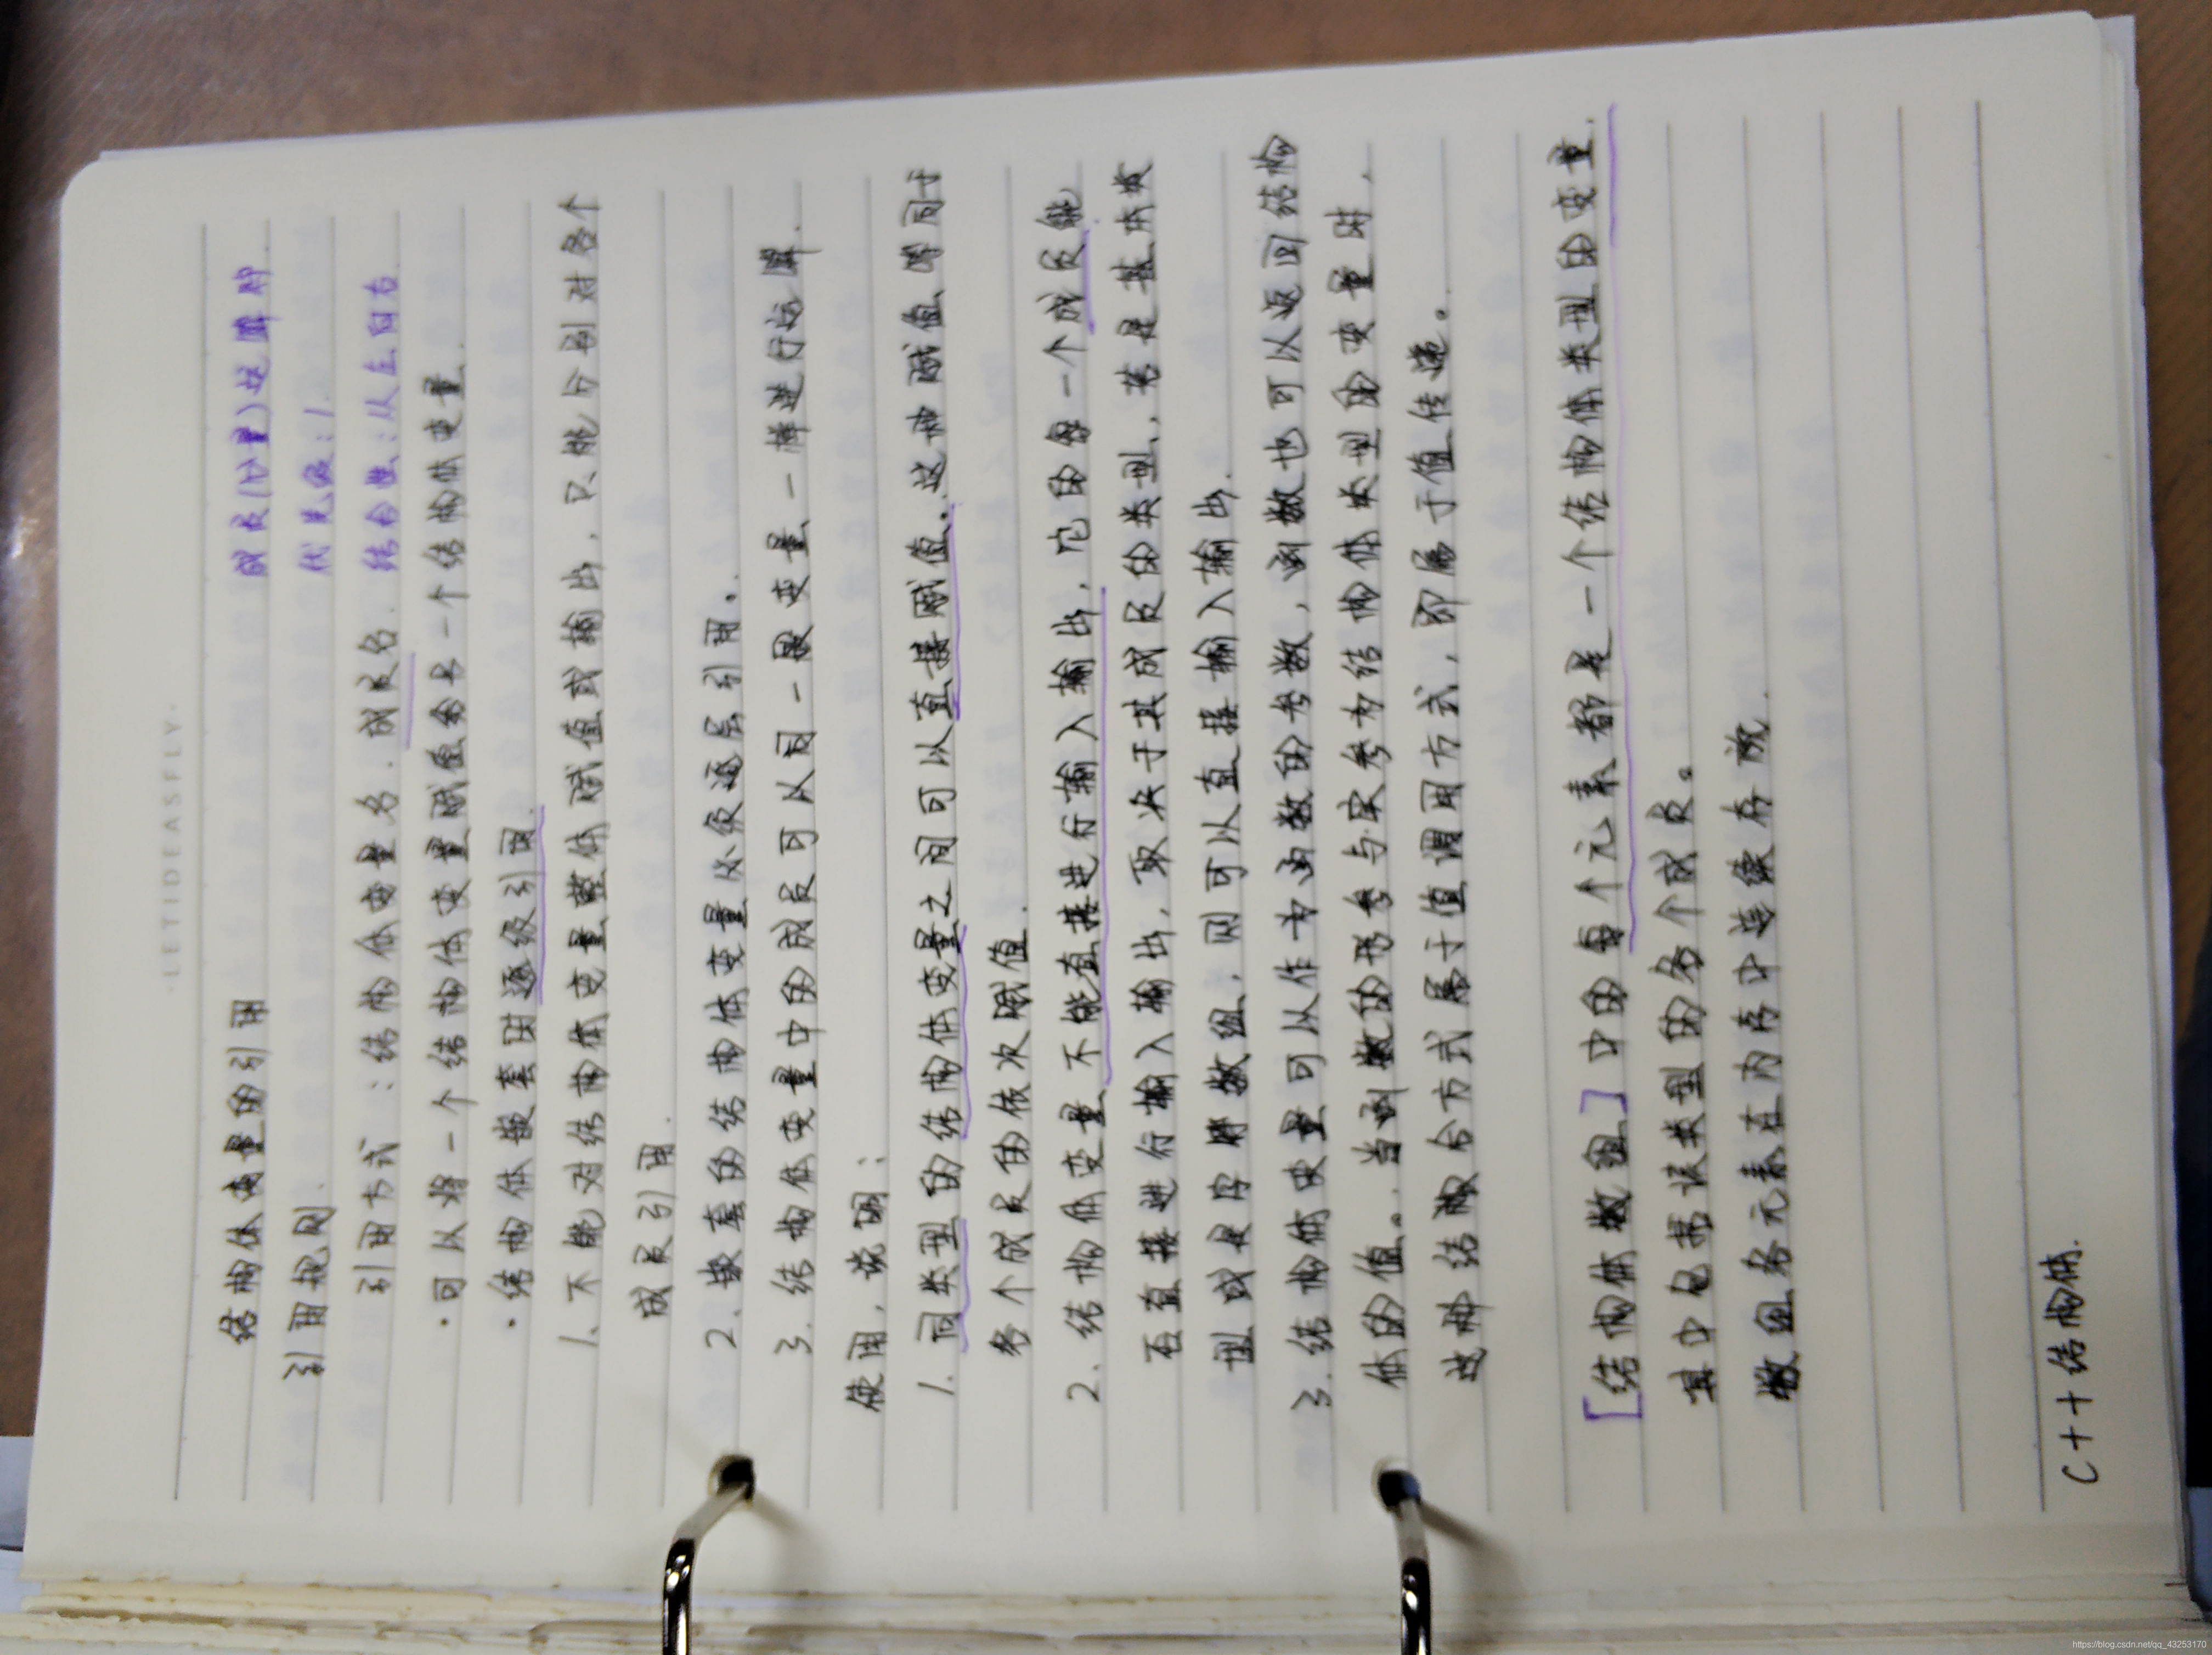 ·LETIDEASFLY·
结构体变量的引用 成员(分量)运算符.
引用规则. 优先级:1.
引用方式:结构体变量名.成员名. 结合性:从左向右.
·可以将一个结构体变量赋值给另一个结构体变量.
·结构体嵌套时逐级引用.
1、不能对结构体变量整体赋值或输出,只能分别对各个
成员引用.
2.嵌套的结构体变量必须逐层引用。
3.结构体变量中的成员可以同一般变量一样进行运算.
使用,说明:
1.同类型的结构体变量之间可以直接赋值.这种赋值等同于
各个成员的依次赋值.
2.结构体变量不能直接进行输入输出,它的每一个成员能
否直接进行输入输出,取决于其成员的类型,若是基本类
型或是字符数组,则可以直接输入输出.
3.结构体变量可以作为函数的参数,函数也可以返回结构
体的值。当函数的形参与实参为结构体类型的变量时,
这种结合方式属于值调用方式,即属于值传递。
[结构体数组]中的每个元素都是一个结构体类型的变量.
其中包括该类型的各个成员。
数组各元素在内存中连续存放.
C++结构体.
https://blog.csdn.net/qq_43253170